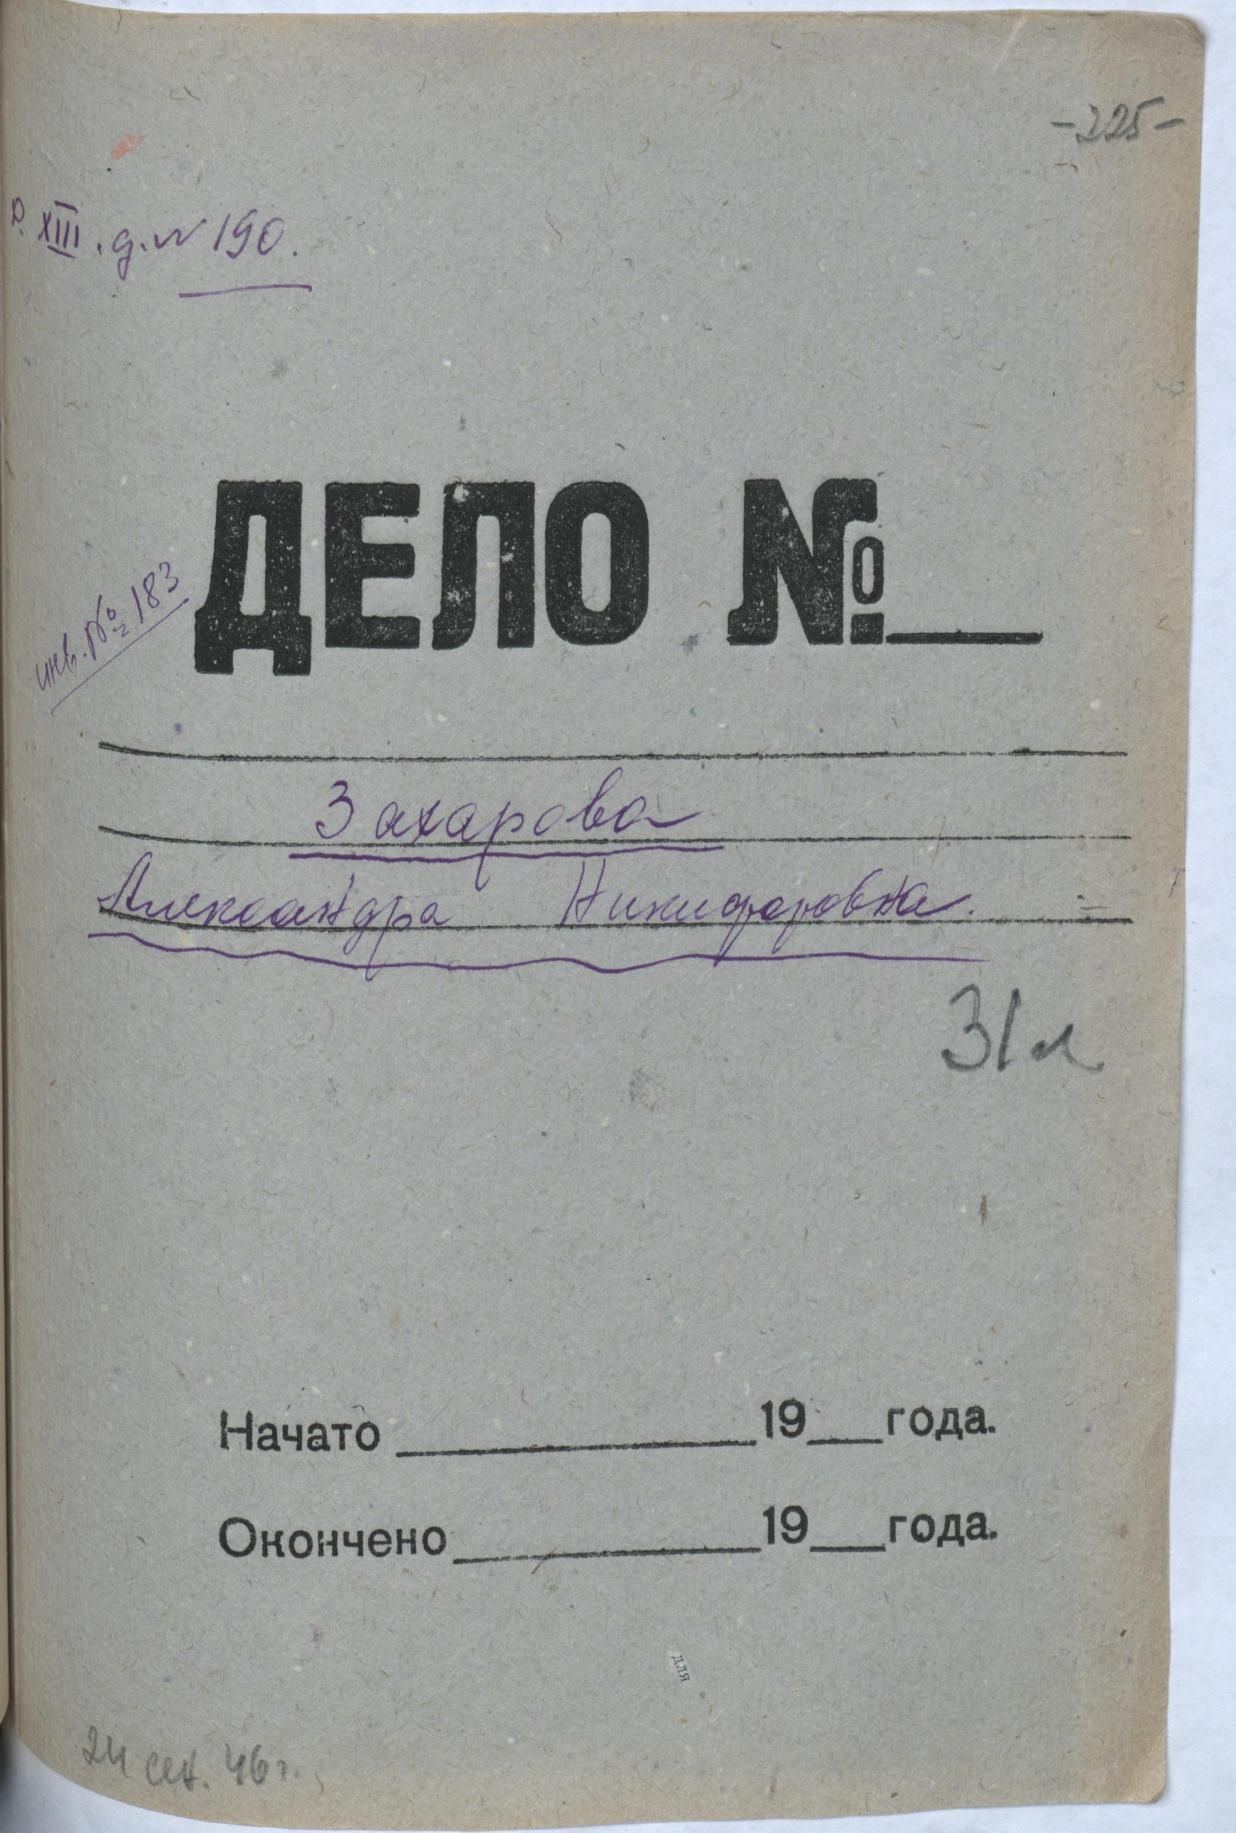 -225-
Р. XIII. д. № 190.
ДЕЛО №
инв. № 183
Захарова
Александра Никифоровна.
31 л
Начато 19 года.
Окончено 19 года.
для
24 сен. 46 г.